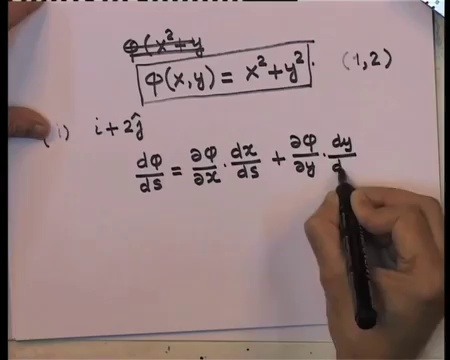 φ(x²+y
φ(x,y) = x²+y². (1,2)
(i) i+2ĵ
dφ/ds = ∂φ/∂x · dx/ds + ∂φ/∂y · dy/d